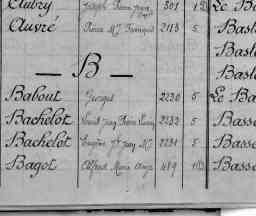 Aubry Joseph Pierre 301 1D Le B
Auvré Pierre Mie François 2113 5 Baste
Baste
— B — Baste
Babout Georges 2230 5 Le Ba
Bachelot Jean Pierre 2232 5 Basse
Bachelot Eugène Jean Mie 2231 5 Basse
Bagot Alfred Marie Ange 419 1D Basse